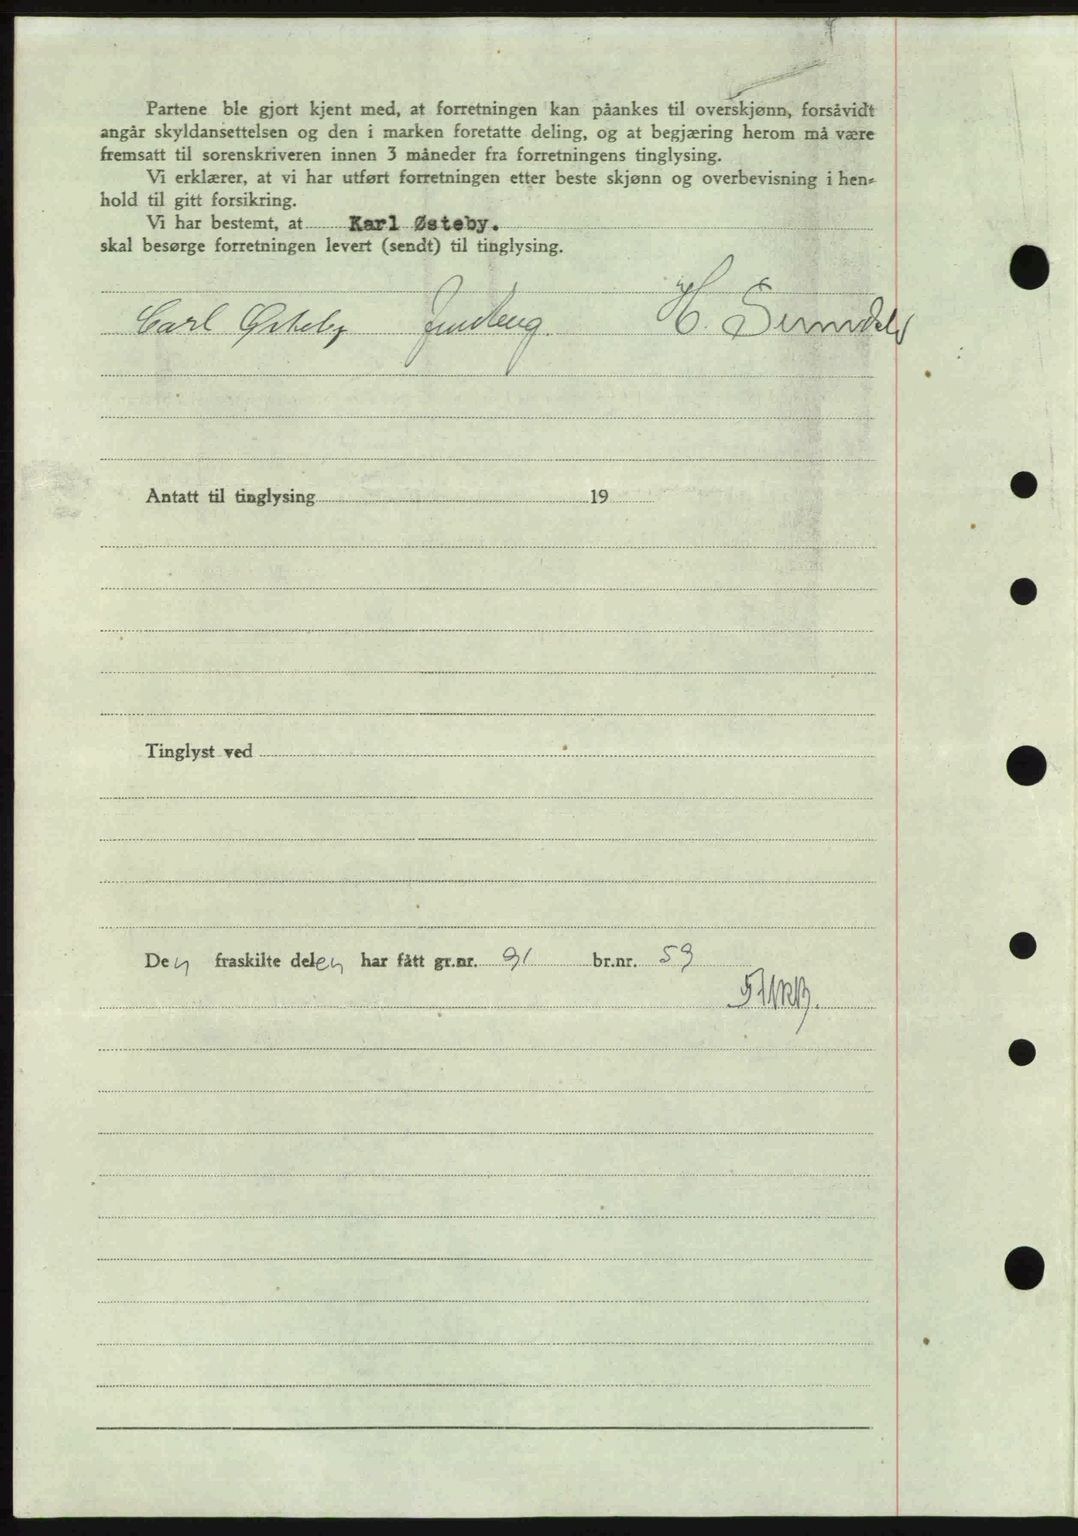 Partene ble gjort kjent med, at forretningen kan påankes til overskjønn, forsåvidt
angår skyldansettelsen og den i marken foretatte deling, og at begjæring herom må være
fremsatt til sorenskriveren innen 3 måneder fra forretningens tinglysing.
Vi erklærer, at vi har utført forretningen etter beste skjønn og overbevisning i hen-
hold til gitt forsikring.
Vi har bestemt, at Karl Østeby.
skal besørge forretningen levert (sendt) til tinglysing.
Carl Østeby H. Sumdal
Antatt til tinglysing 19
Tinglyst ved
Den fraskilte delen har fått gr.nr. 91 br.nr. 59